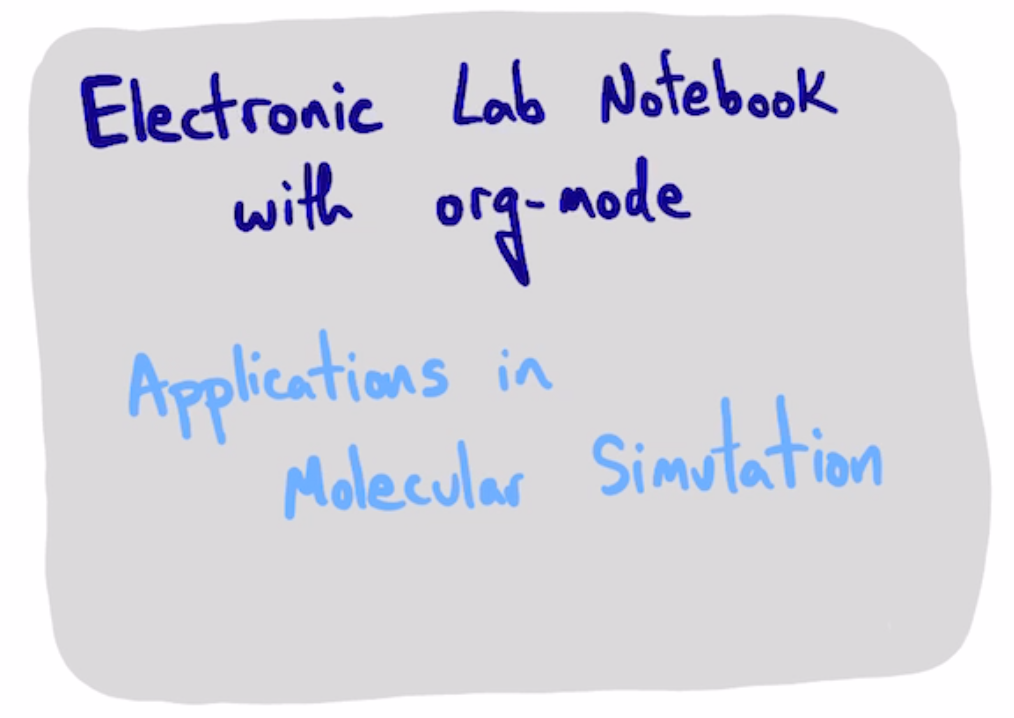 Electronic Lab Notebook
with org-mode
Applications in
Molecular Simulation